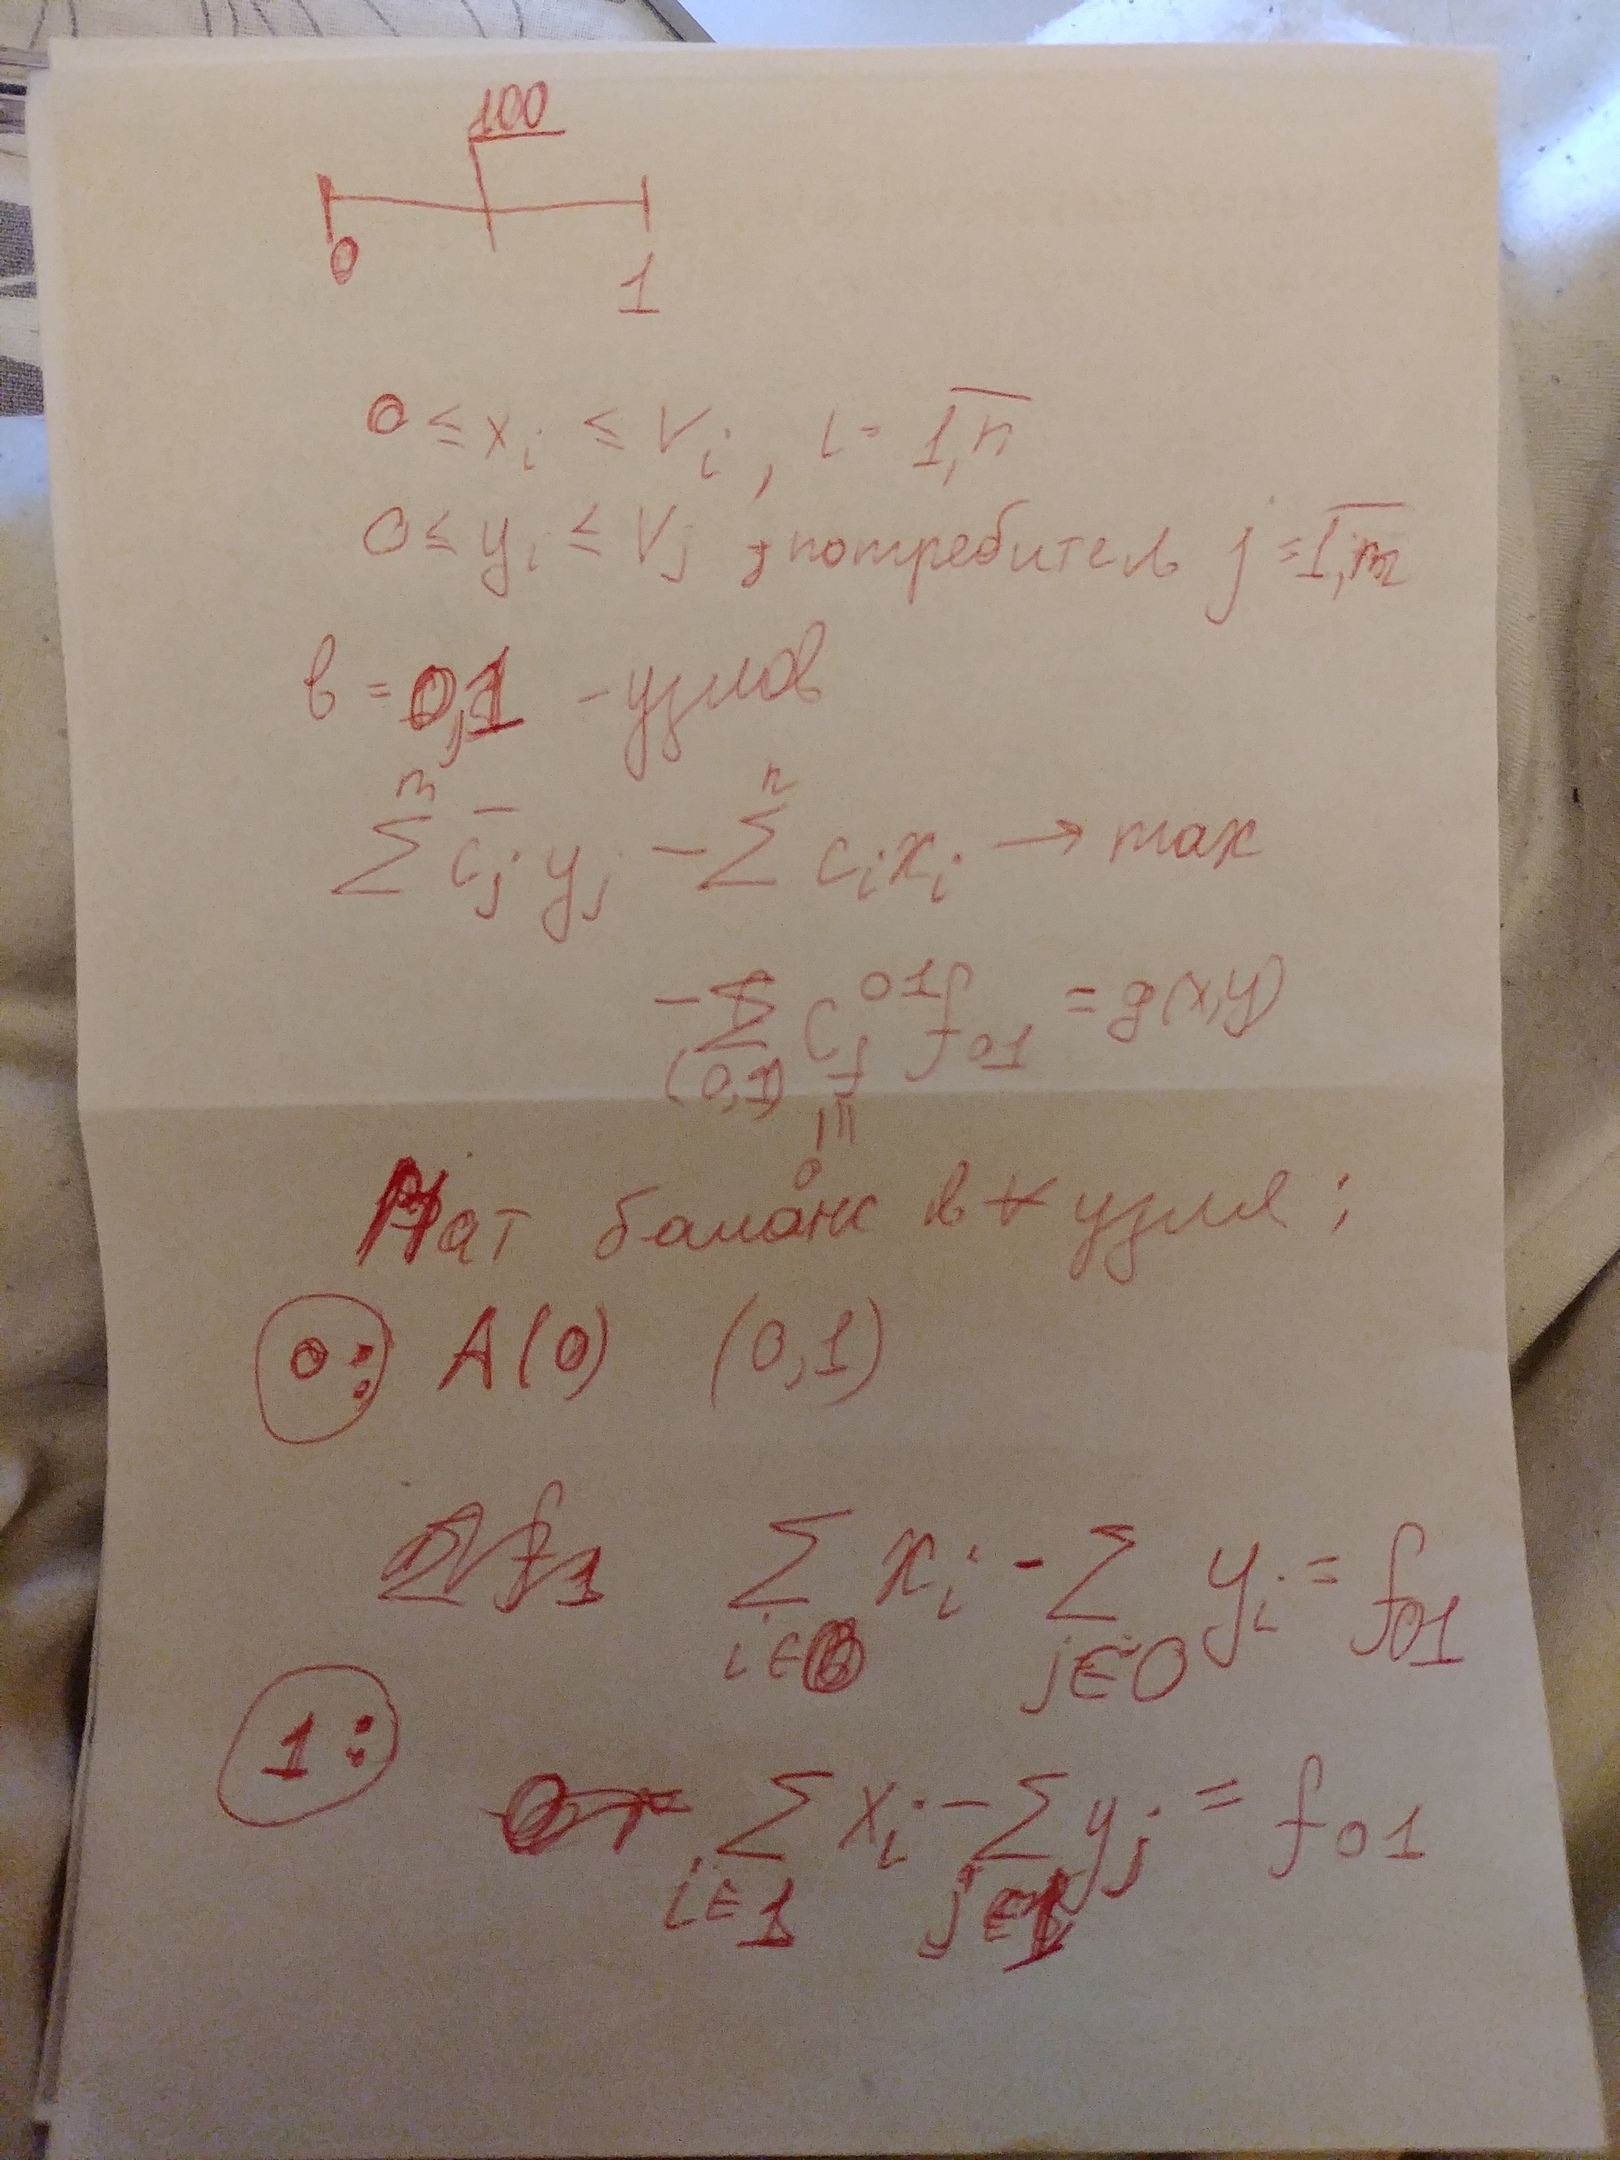 100
0 1
0 ≤ x_i ≤ V_i, i = \overline{1,n}
0 ≤ y_i ≤ V_j, потребитель j = \overline{1,m}
в = 0,1 - узлов
∑^m \bar{c}_j y_j - ∑^n c_i x_i → max
- ∑_{(0,1)} C^{01} f_{01} = g(x,y)
0
Мат баланс в ∀ узля:
0: A(0) (0,1)
∑_{i∈0} x_i - ∑_{j∈0} y_i = f_{01}
1:
∑_{i∈1} x_i - ∑_{j∈1} y_j = f_{01}